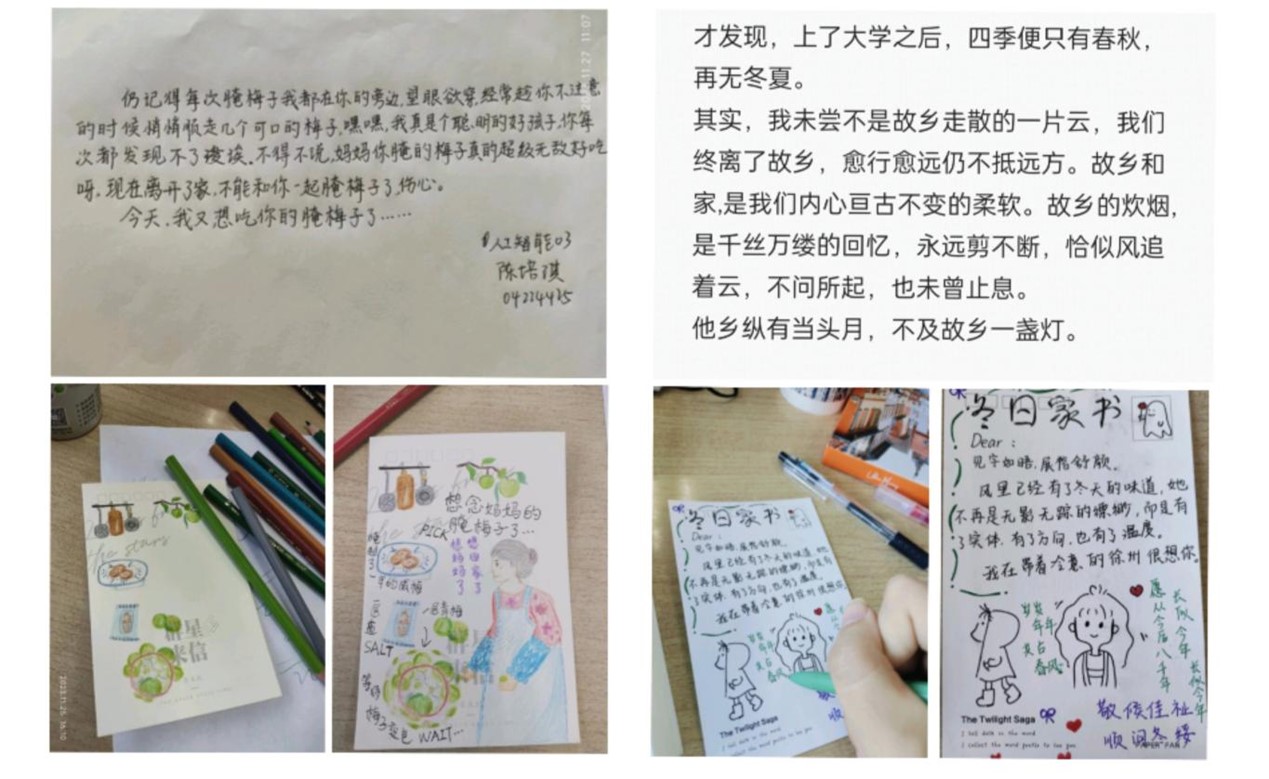 仍记得每次腌梅子我都在你的旁边,望眼欲穿,经常趁你不注意
的时候悄悄顺走几个可口的梅子,嘿嘿,我真是个聪明的好孩子,你每
次都发现不了诶诶。不得不说,妈妈你腌的梅子真的超级无敌好吃
呀。现在离开了家,不能和你一起腌梅子了,伤心。
今天,我又想吃你的腌梅子了……
人工智能03
陈培琪
04224425
11.27 11:07
才发现，上了大学之后，四季便只有春秋，
再无冬夏。
其实，我未尝不是故乡走散的一片云，我们
终离了故乡，愈行愈远仍不抵远方。故乡和
家,是我们内心亘古不变的柔软。故乡的炊烟,
是千丝万缕的回忆，永远剪不断，恰似风追
着云，不问所起，也未曾止息。
他乡纵有当头月，不及故乡一盏灯。
the stars
群星
来信
想念妈妈的
腌梅子了…
PICK
想妈妈了
想回家了
SALT
等待
梅子变色 WAIT…
冬日家书
Dear :
见字如晤,展信舒颜。
风里已经有了冬天的味道,她
不再是无影无踪的
了实体,有了方向,也有了温度。
我在带着冷意的徐州很想你
岁岁
年年
共占
春风
The Twilight Saga
冬日家书
Dear :
见字如晤,展信舒颜。
风里已经有了冬天的味道,她
不再是无影无踪的缥缈,而是有
了实体,有了方向,也有了温度。
我在带着冷意的徐州很想你。
岁岁
年年
共占
春风
愿从今后八千年
长似今年
长似今年
The Twilight Saga
敬候佳祉
顺问冬绥